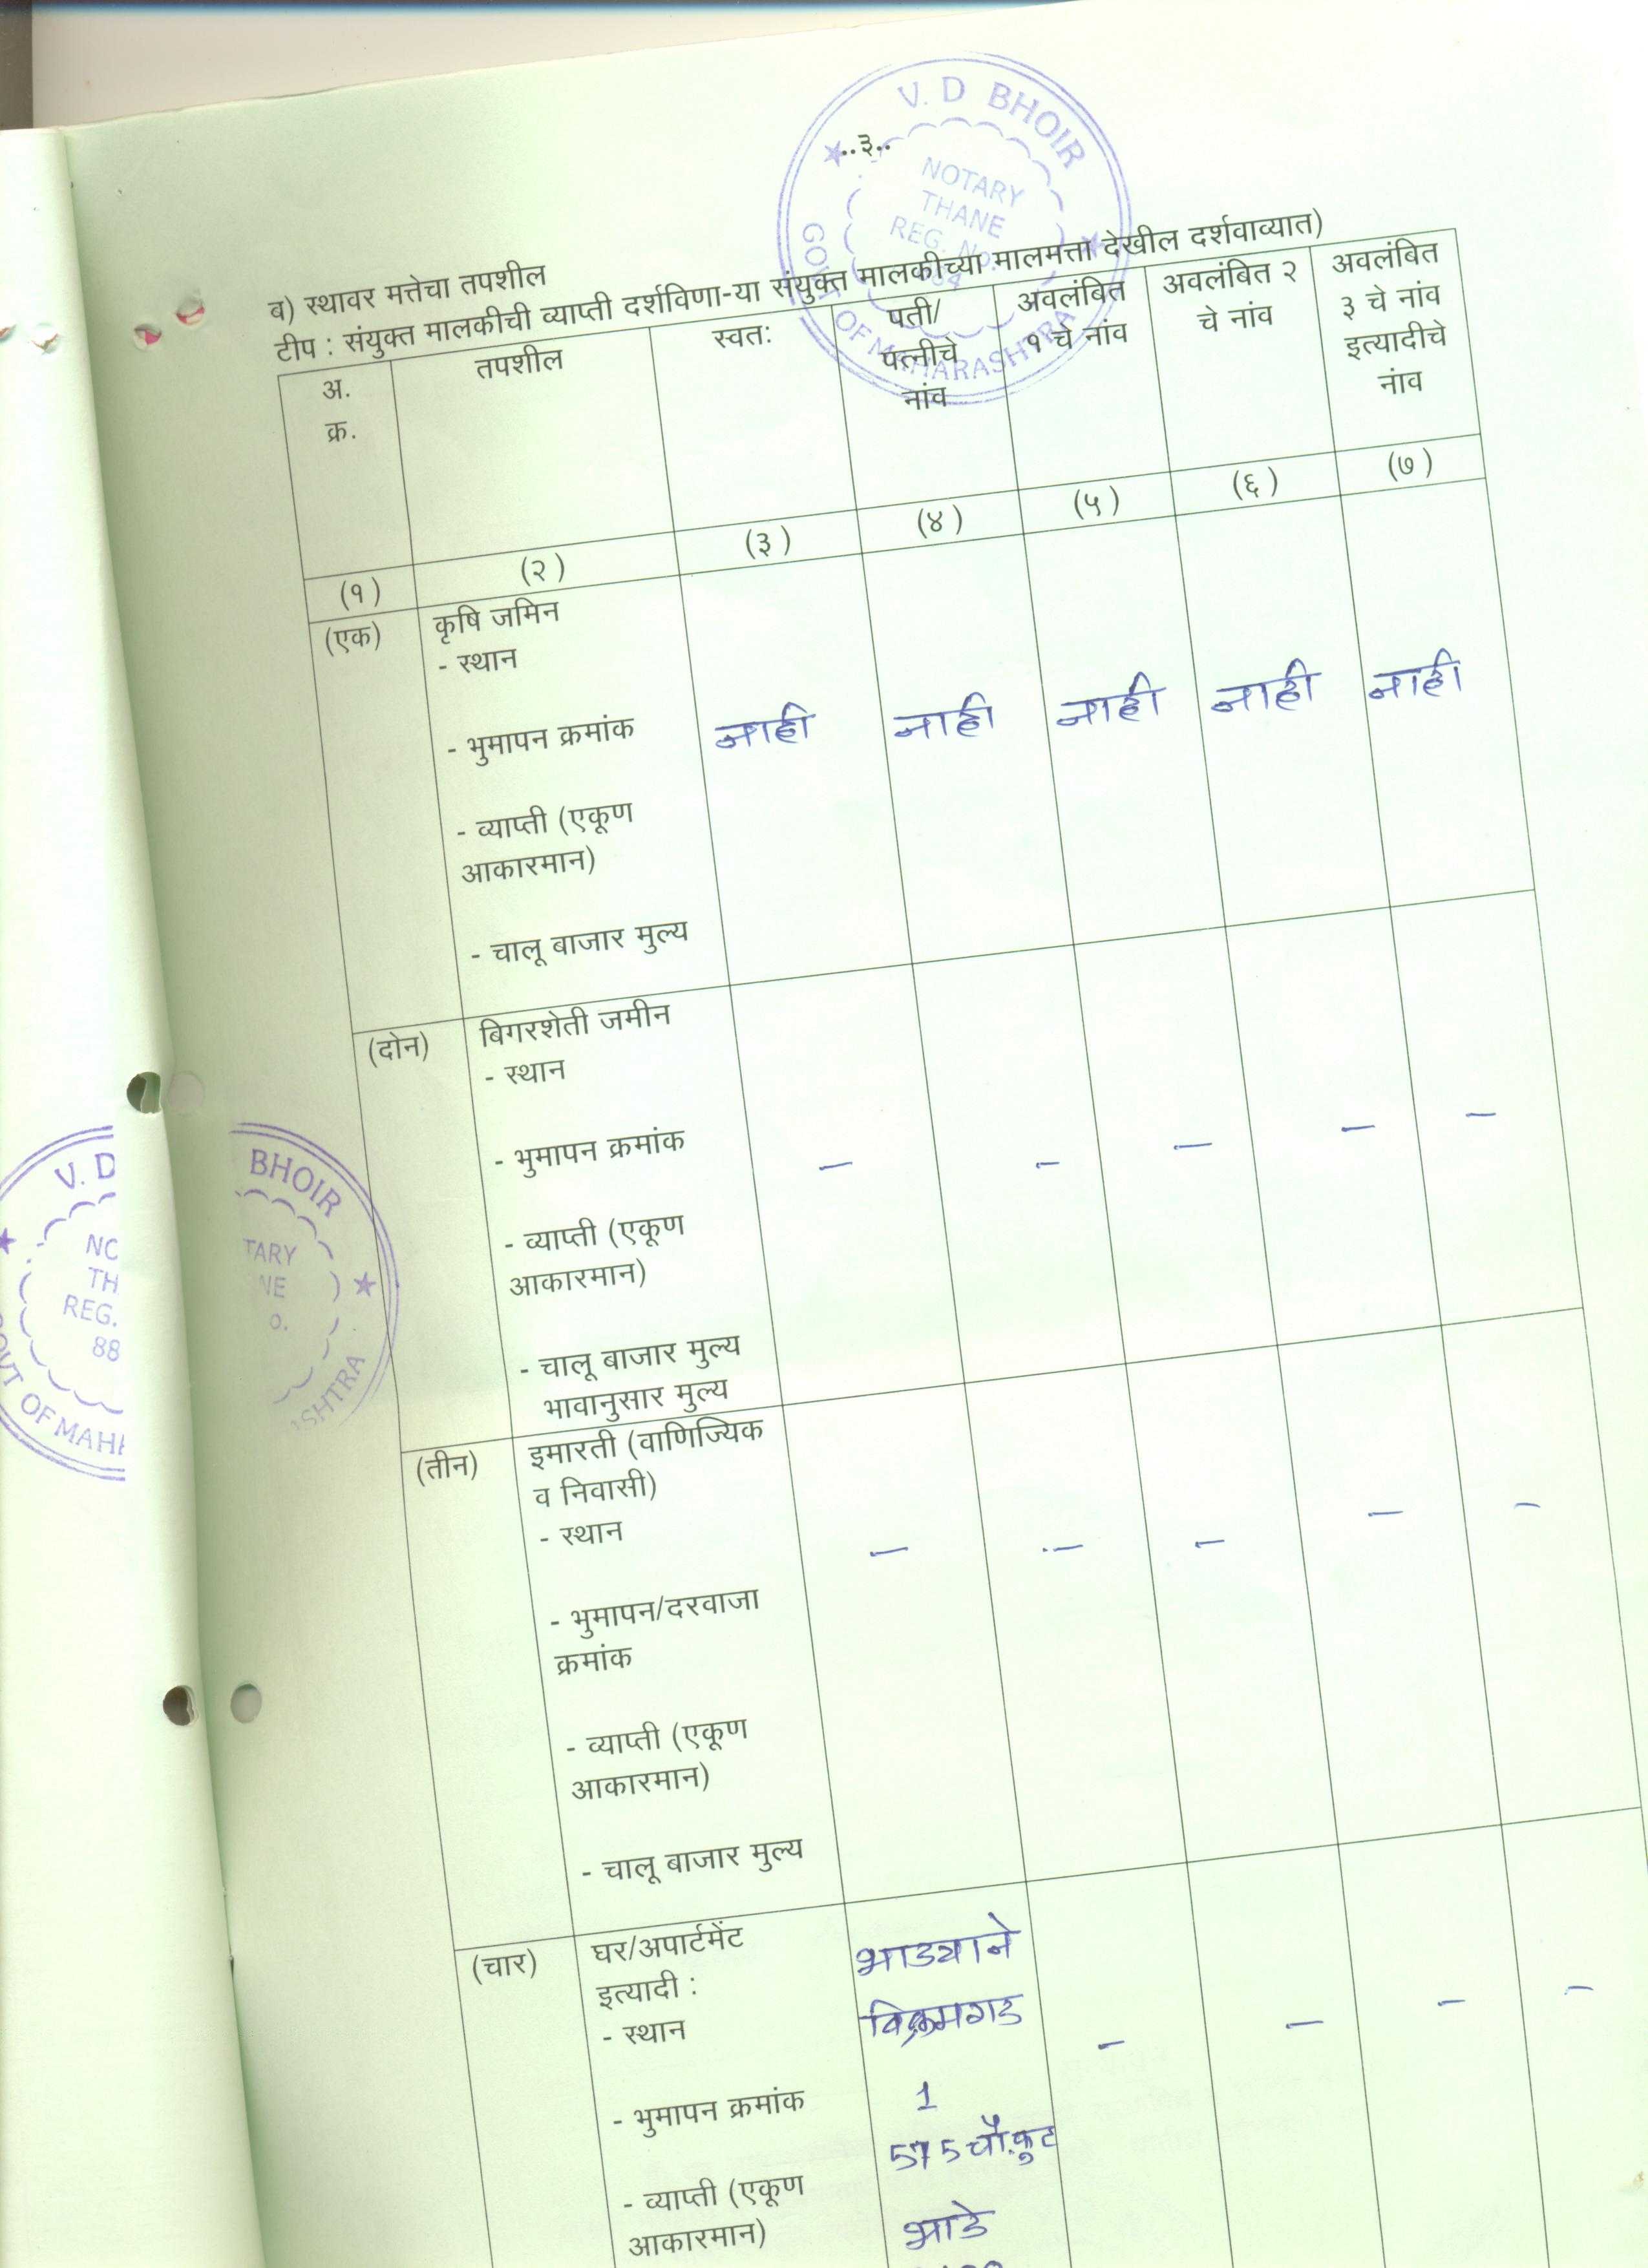 V. D BHOIR
NOTARY
THANE
REG. No.
GOVT OF MAHARASHTRA
..३..
ब) स्थावर मत्तेचा तपशील
टीप : संयुक्त मालकीची व्याप्ती दर्शविणा-या संयुक्त मालकीच्या मालमत्ता देखील दर्शवाव्यात)
अ.
क्र.
तपशील
स्वतः
पती/
पत्नीचे
नांव
अवलंबित
१ चे नांव
अवलंबित २
चे नांव
अवलंबित
३ चे नांव
इत्यादीचे
नांव
(१) (२) (३) (४) (५) (६) (७)
(एक) कृषि जमिन
- स्थान
- भुमापन क्रमांक नाही नाही नाही नाही नाही
- व्याप्ती (एकूण
आकारमान)
- चालू बाजार मुल्य
(दोन) बिगरशेती जमीन
- स्थान
- भुमापन क्रमांक – – – – –
- व्याप्ती (एकूण
आकारमान)
- चालू बाजार मुल्य
भावानुसार मुल्य
(तीन) इमारती (वाणिज्यिक
व निवासी)
- स्थान – – – – –
- भुमापन/दरवाजा
क्रमांक
- व्याप्ती (एकूण
आकारमान)
- चालू बाजार मुल्य
(चार) घर/अपार्टमेंट भाड्याने
इत्यादी :
- स्थान विक्रमगड – – – –
- भुमापन क्रमांक 1
575 चौ.फुट
- व्याप्ती (एकूण
आकारमान) भाडे
V. D BHOIR
NC TARY
TH NE
REG. O.
88
OVT OF MAHA SHTRA